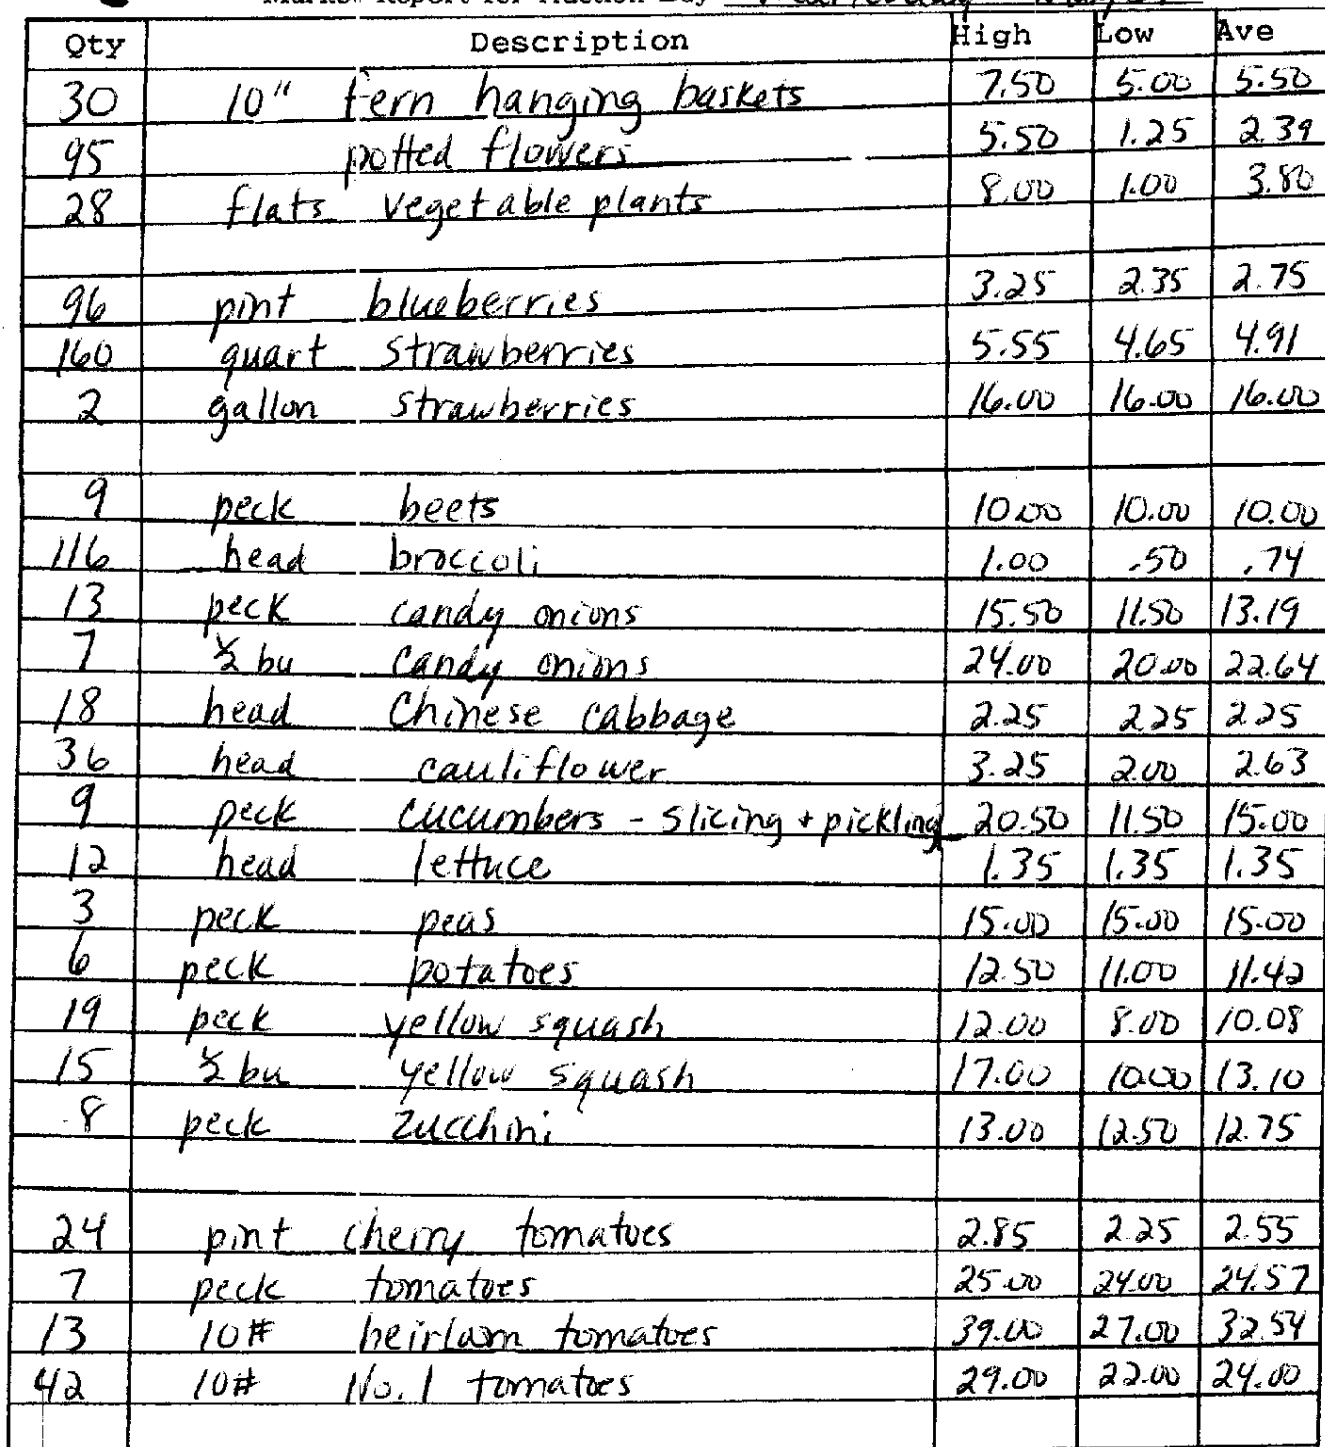 Market Report for Auction Day Wednesday
Qty Description High Low Ave
30 10" fern hanging baskets 7.50 5.00 5.50
95 potted flowers 5.50 1.25 2.39
28 flats vegetable plants 8.00 1.00 3.80
96 pint blueberries 3.25 2.35 2.75
160 quart strawberries 5.55 4.65 4.91
2 gallon strawberries 16.00 16.00 16.00
9 peck beets 10.00 10.00 10.00
116 head broccoli 1.00 .50 .74
13 peck candy onions 15.50 11.50 13.19
7 ½ bu candy onions 24.00 20.00 22.64
18 head Chinese cabbage 2.25 2.25 2.25
36 head cauliflower 3.25 2.00 2.63
9 peck cucumbers - slicing + pickling 20.50 11.50 15.00
12 head lettuce 1.35 1.35 1.35
3 peck peas 15.00 15.00 15.00
6 peck potatoes 12.50 11.00 11.42
19 peck yellow squash 12.00 8.00 10.08
15 ½ bu yellow squash 17.00 10.00 13.10
8 peck zucchini 13.00 12.50 12.75
24 pint cherry tomatoes 2.85 2.25 2.55
7 peck tomatoes 25.00 24.00 24.57
13 10# heirloom tomatoes 39.00 27.00 32.54
42 10# No. 1 tomatoes 29.00 22.00 24.00